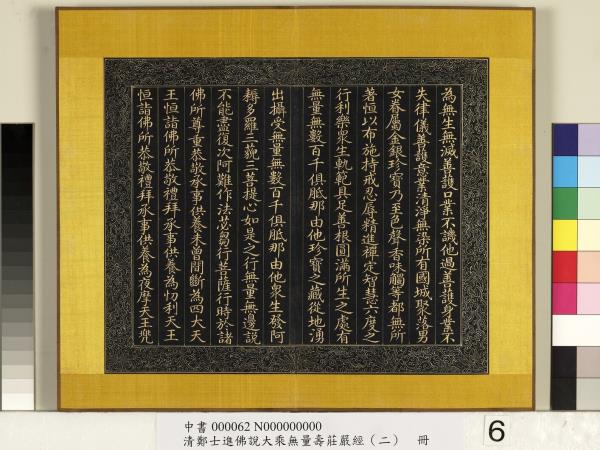 為無生無滅善護口業不譏他過善護身業不
失律儀善護意業清淨無染所有國城聚落男
女眷屬金銀珍寶乃至色聲香味觸等都無所
著恒以布施持戒忍辱精進禪定智慧六度之
行利樂眾生軌範具足善根圓滿所生之處有
無量無數百千俱胝那由他珍寶之藏從地湧
出攝受無量無數百千俱胝那由他眾生發阿
耨多羅三藐三菩提心如是之行無量無邊說
不能盡復次阿難作法必芻行菩薩行時於諸
佛所尊重恭敬承事供養未曾間斷為四大天
王恒詣佛所恭敬禮拜承事供養為忉利天王
恒詣佛所恭敬禮拜承事供養為夜摩天王兜
中書 000062 N000000000
清鄭士進佛說大乘無量壽莊嚴經（二） 冊
6